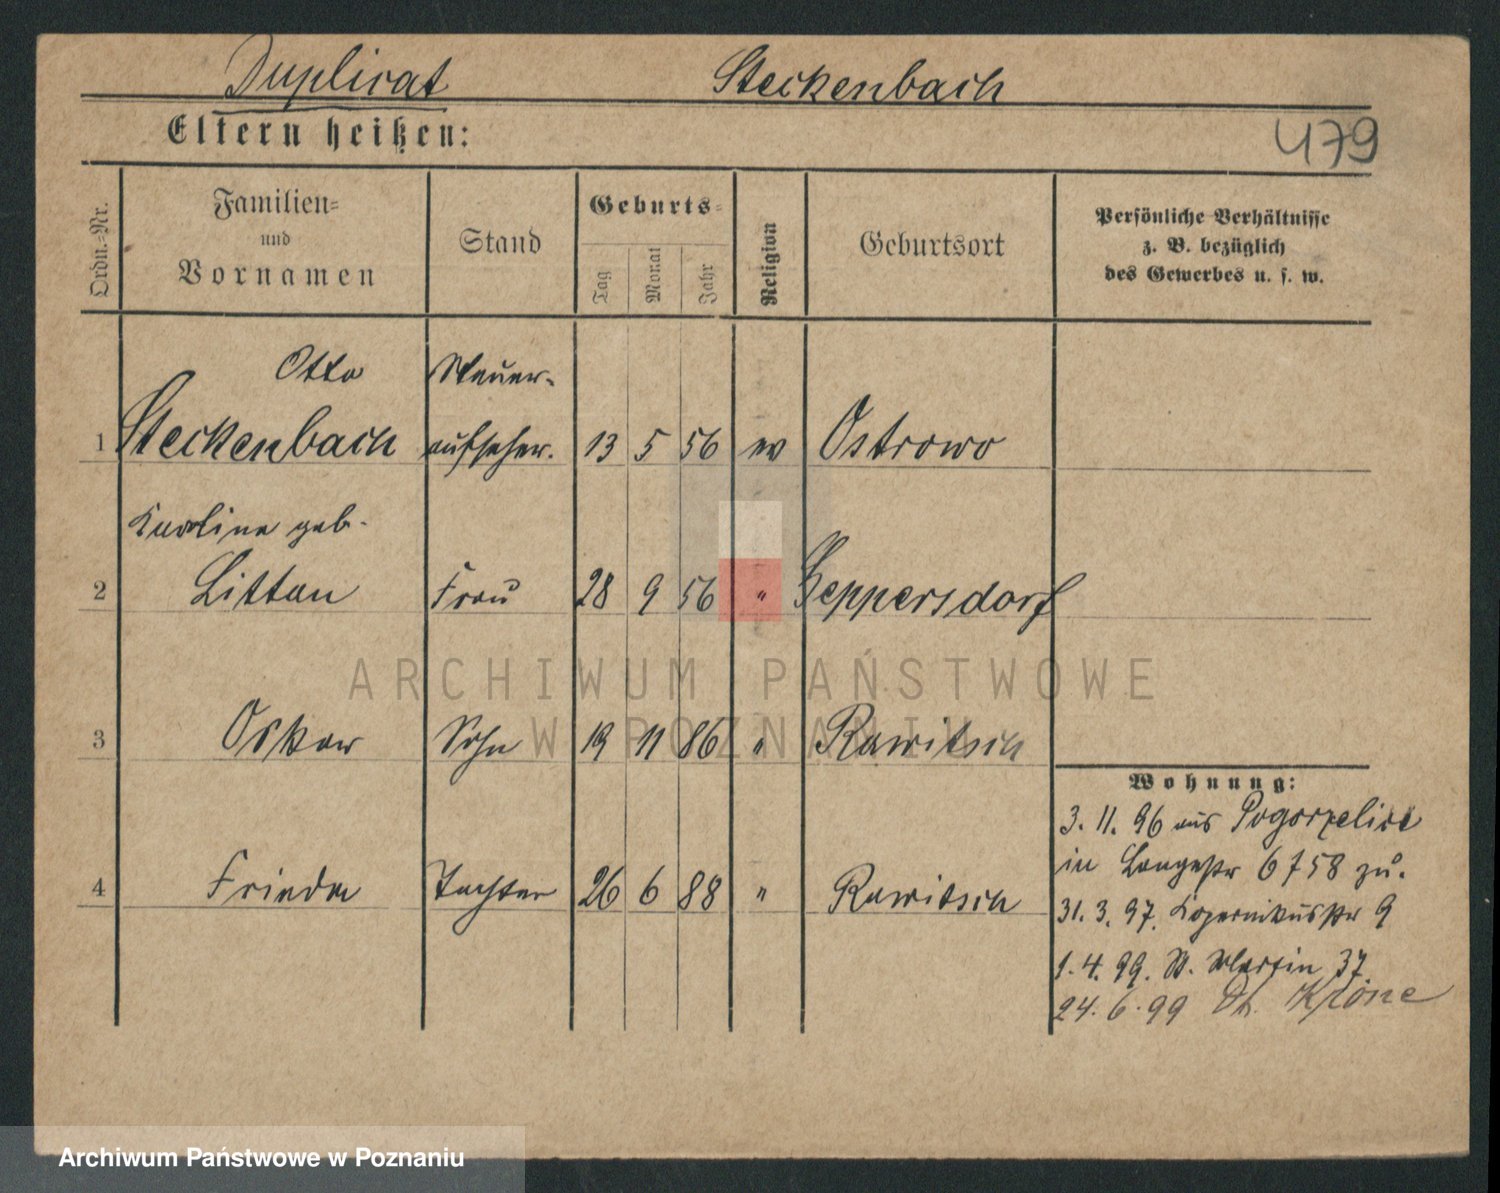 Duplicat Steckenbach
Eltern heißen:
479
Ordn.-Nr.
Familien-
und
Vornamen
Stand
Geburts-
Tag
Monat
Jahr
Religion
Geburtsort
Persönliche Verhältnisse
z. B. bezüglich
des Gewerbes u. s. w.
Otto Steuer-
1 Steckenbach aufseher. 13 5 56 ev Ostrowo
Karoline geb.
2 Littan Frau 28 9 56 " Heppersdorf
3 Oskar Sohn 19 11 86 " Rawitsch
4 Frieda Tochter 26 6 88 " Rawitsch
Wohnung:
3. 11. 96 aus Pogorzelice
in Langestr 6758 zu.
31. 3. 97. Kopernikusstr 9
1. 4. 99. St. Martin 37
24. 6. 99 Dt. Krone
ARCHIWUM PAŃSTWOWE
W POZNANIU
Archiwum Państwowe w Poznaniu